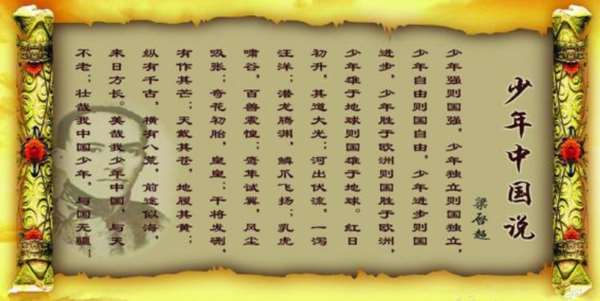 少年中国说
梁启超
少年强则国强，少年独立则国独立，
少年自由则国自由，少年进步则国
进步，少年胜于欧洲则国胜于欧洲，
少年雄于地球则国雄于地球。红日
初升，其道大光；河出伏流，一泻
汪洋；潜龙腾渊，鳞爪飞扬；乳虎
啸谷，百兽震惶；鹰隼试翼，风尘
吸张；奇花初胎，皇皇；干将发硎，
有作其芒；天戴其苍，地履其黄；
纵有千古，横有八荒，前途似海，
来日方长。美哉我少年中国，与天
不老；壮哉我中国少年，与国无疆！